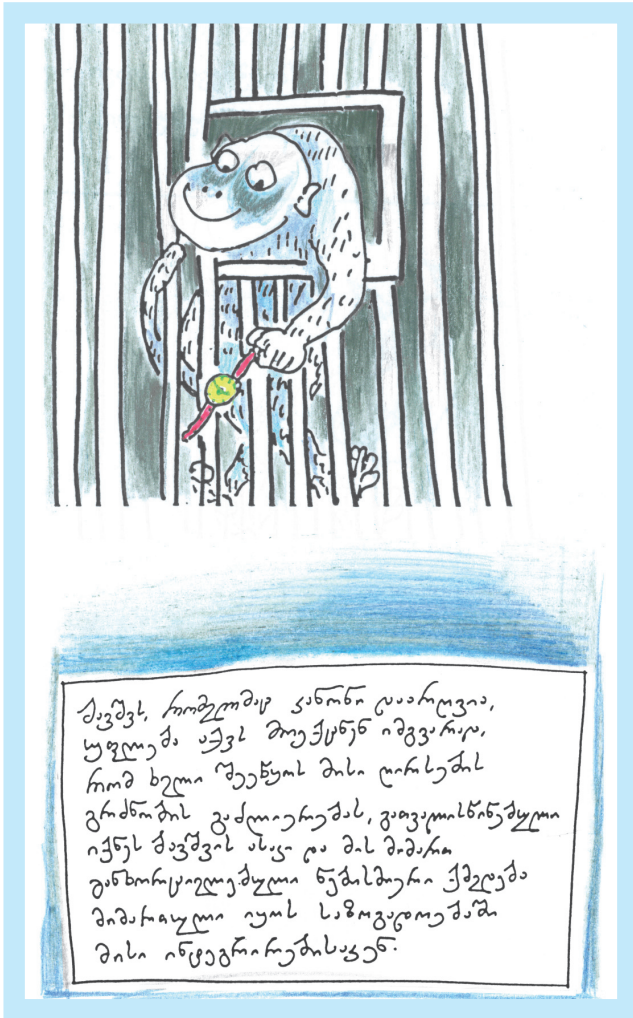 ბავშვს, რომელმაც კანონი დაარღვია,
უფლება აქვს მოექცნენ იმგვარად,
რომ ხელი შეეწყოს მისი ღირსების
გრძნობის გაძლიერებას, გათვალისწინებული
იქნეს ბავშვის ასაკი და მის მიმართ
განხორციელებული ნებისმიერი ქმედება
მიმართული იყოს საზოგადოებაში
მისი ინტეგრირებისაკენ.